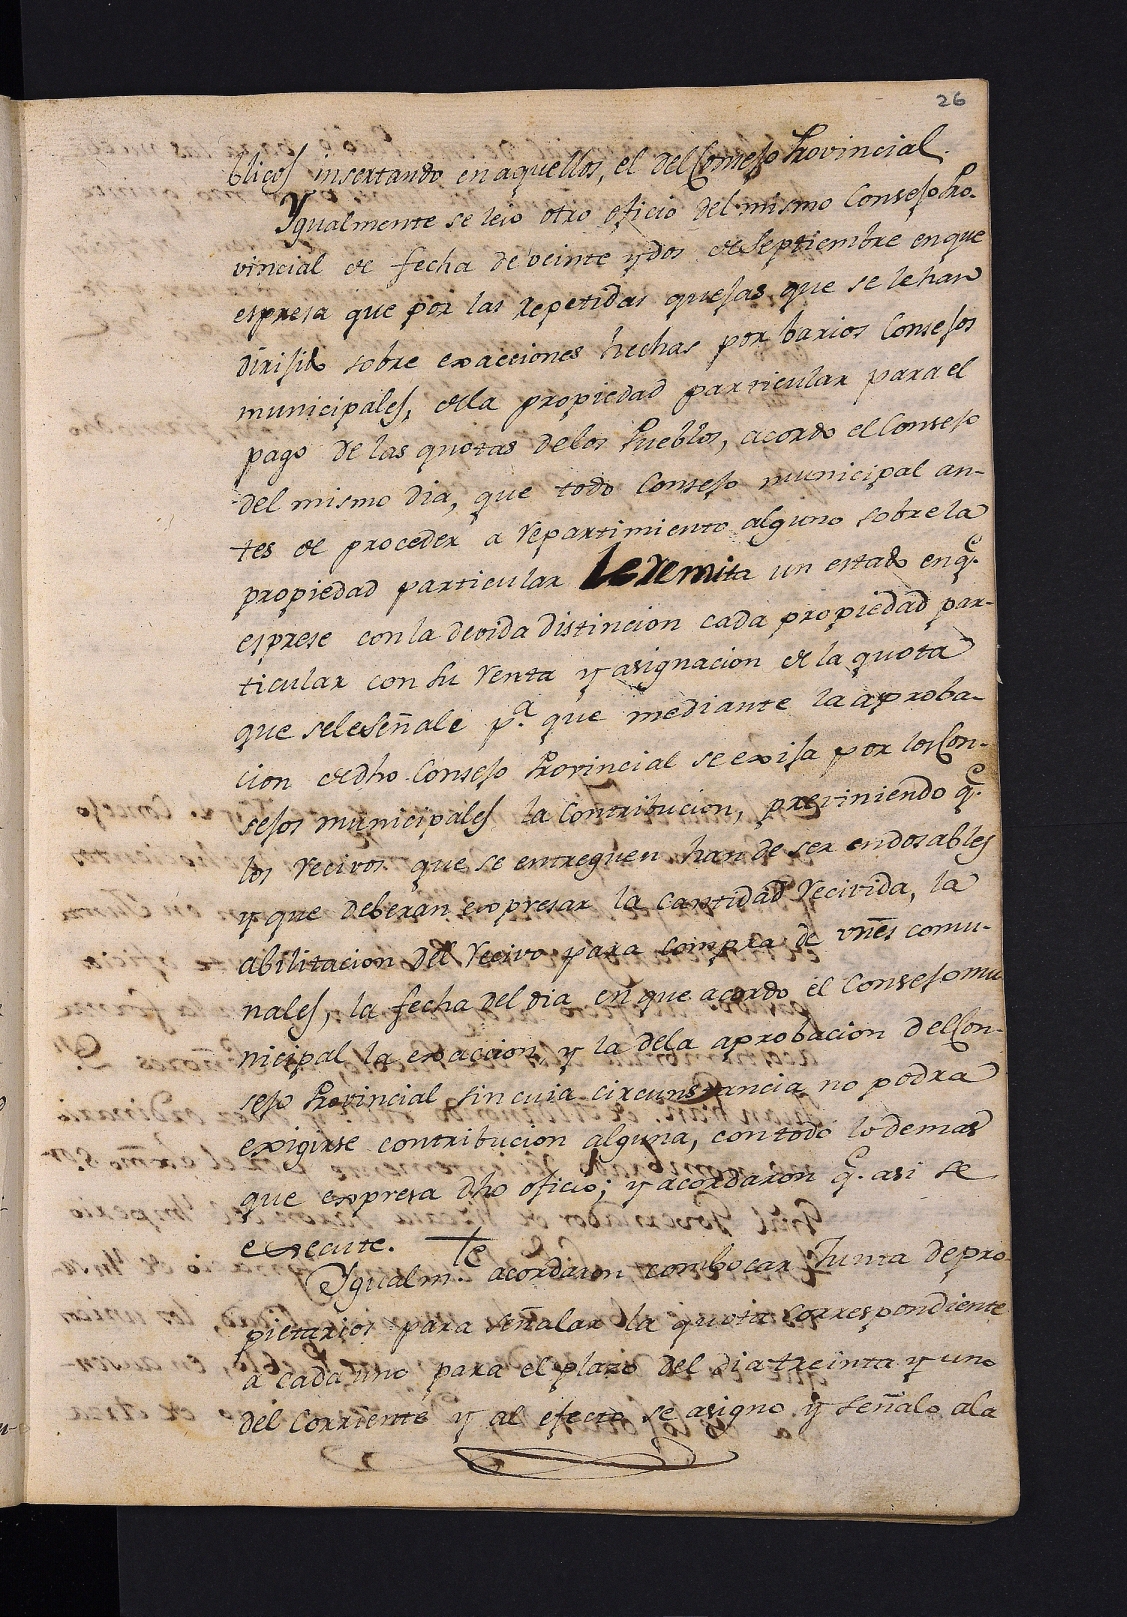 26
blicos insertando en aquellos, el del Consejo Provincial.
Ygualmente se leio otro oficio del mismo Consejo Pro-
vincial de fecha de veinte y dos de Septiembre en que
espresa que por las repetidas quejas que se le han
dirijido sobre exacciones hechas por barios Consejos
municipales, de la propiedad particular para el
pago de las quotas de los Pueblos, acordo el Consejo
del mismo dia, que todo Consejo municipal an-
tes de proceder a repartimiento alguno sobre la
propiedad particular le remita un estado en q.e
esprese con la devida distincion cada propiedad par-
ticular con su renta y asignacion de la quota
que se le señale p.a que mediante la aproba-
cion de dho Consejo Provincial se exija por los Con-
sejos municipales la contribucion, previniendo q.e
los recivos que se entreguen han de ser endosables
y que deberan expresar la cantidad recivida, la
abilitacion del recivo para compra de vnes comu-
nales, la fecha del dia en que acordo el Consejo mu
nicipal la exaccion, y la de la aprobacion del Con-
sejo Provincial sin cuia circunstancia no podra
exigirse contribucion alguna, con todo lo demas
que expresa dho oficio; y acordaron q.e asi se
execute.
Ygualm.te acordaron combocar Junta de pro
pietarios para señalar la quota correspondiente
a cada uno para el plazo del dia treinta y uno
del corriente y al efecto se asigno y señalo a la